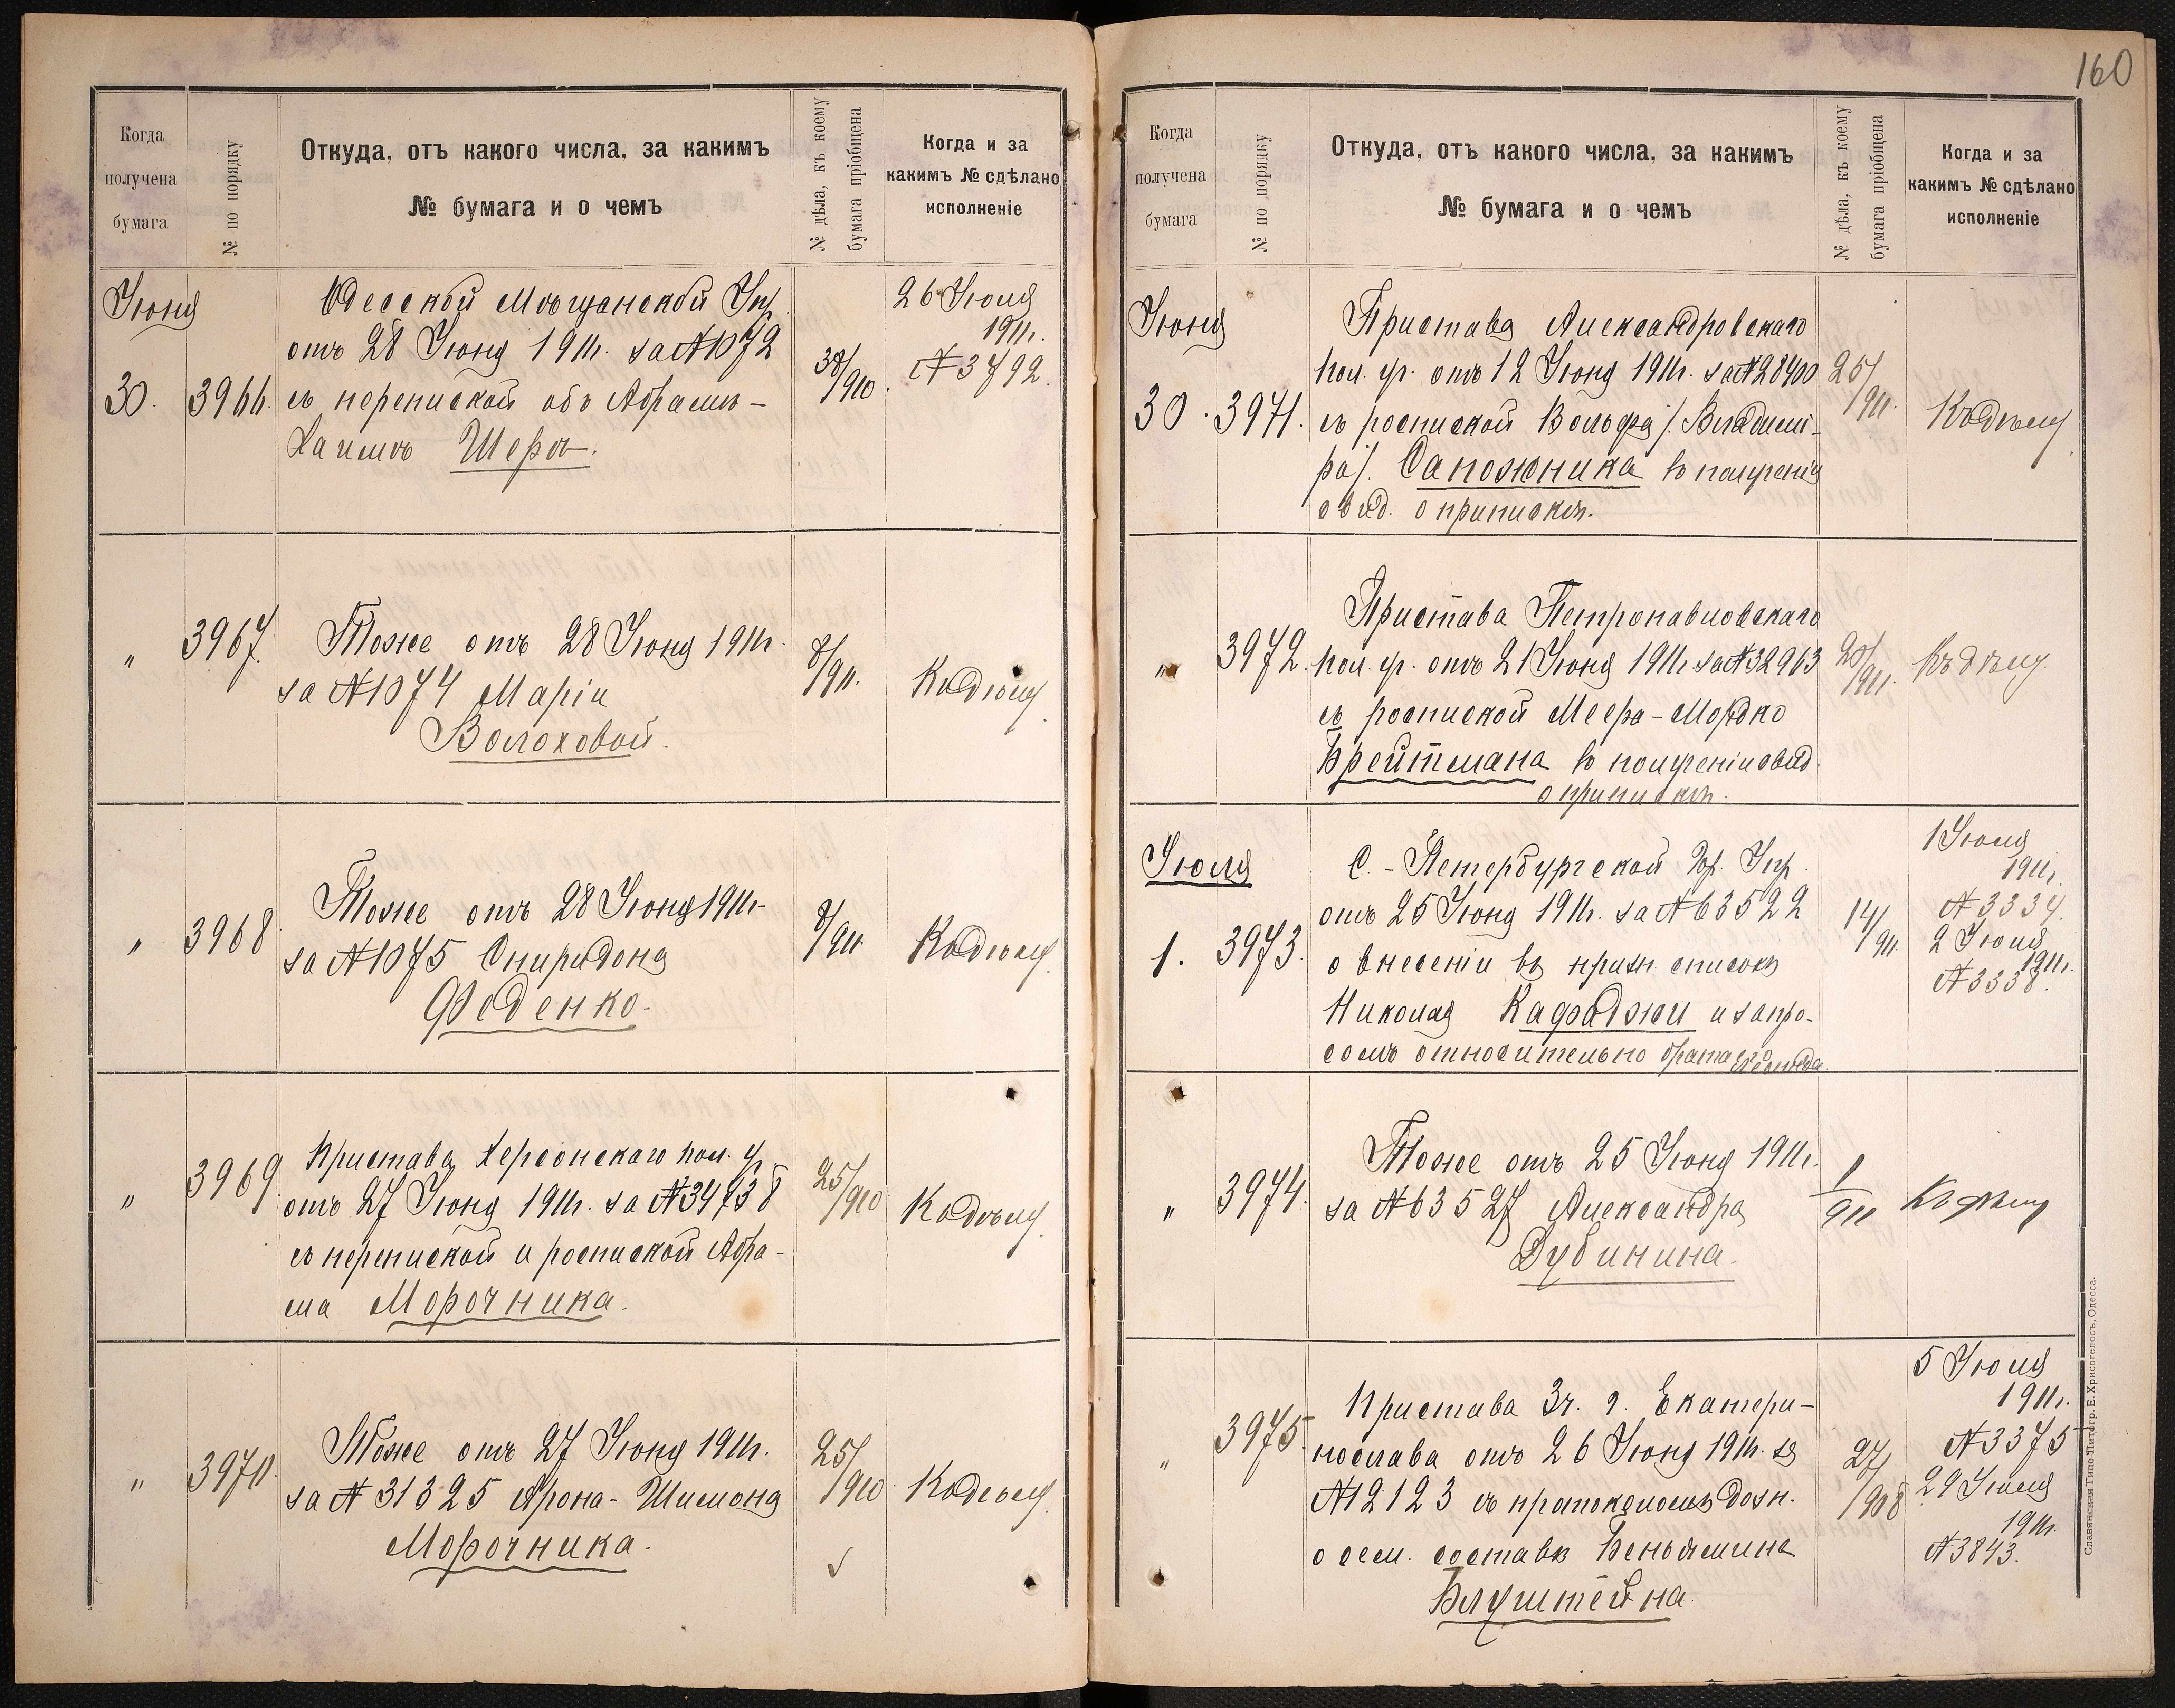 160
Когда
получена
бумага
№ по порядку
Откуда, отъ какого числа, за какимъ
№ бумага и о чемъ
№ дѣла, къ коему
бумага пріобщена
Когда и за
какимъ № сдѣлано
исполненіе
Іюня
30.
3966.
Одесской Мѣщанской Упр.
отъ 28 Іюня 1911г. за №1072
съ перепиской объ Абрамъ-
Хаимѣ Шеръ.
38/910.
26 Іюля
1911г.
№3792.
"
3967.
Тоже отъ 28 Іюня 1911г.
за №1074 Маріи
Волоховой.
8/911.
Къ дѣлу.
"
3968
Тоже отъ 28 Іюня 1911г.
за №1075 Спиридона
Феденко.
8/911
Къ дѣлу.
"
3969
Пристава Херсонскаго пол. уч.
отъ 27 Іюня 1911г. за №34738
съ перепиской и роспиской Абра-
ма Морочника.
25/910
Къ дѣлу.
"
3970.
Тоже отъ 27 Іюня 1911г.
за №31325 Арона-Шимона
Морочника.
25/910
Къ дѣлу.
Когда
получена
бумага
№ по порядку
Откуда, отъ какого числа, за какимъ
№ бумага и о чемъ
№ дѣла, къ коему
бумага пріобщена
Когда и за
какимъ № сдѣлано
исполненіе
Іюня
30.
3971.
Пристава Александровскаго
пол. уч. отъ 12 Іюня 1911г. за №28400
съ роспиской Вольфа /Владими-
ра/. Сапожника въ полученіи
свид. о припискѣ.
25/911.
Къ дѣлу
"
3972.
Пристава Петропавловскаго
пол. уч. отъ 21 Іюня 1911г. за №32963
съ роспиской Меера-Мордко
Брейтмана въ полученіи свид.
о припискѣ.
20/911.
Къ дѣлу.
Іюля
1.
3973.
С.-Петербургской Гор. Упр.
отъ 25 Іюня 1911г. за №63522
о внесеніи въ призн. списокъ
Николая Кафаджи и запро-
сомъ относительно брата Леонида.
14/911
1 Іюля
1911г.
№3334.
2 Іюля
1911г.
№3338.
"
3974.
Тоже отъ 25 Іюня 1911г.
за №63527 Александра
Дубинина.
1/911
Къ дѣлу
"
3975.
Пристава 3ч. г. Екатери-
нослава отъ 26 Іюня 1911г. за
№12123 съ протоколомъ дозн.
о сем. составѣ Беньямина
Блуштейна.
27/908
5 Іюля
1911г.
№3375
29 Іюля
1911г.
№3843.
Славянская Типо-Литогр. Е. Хрисогелосъ, Одесса.